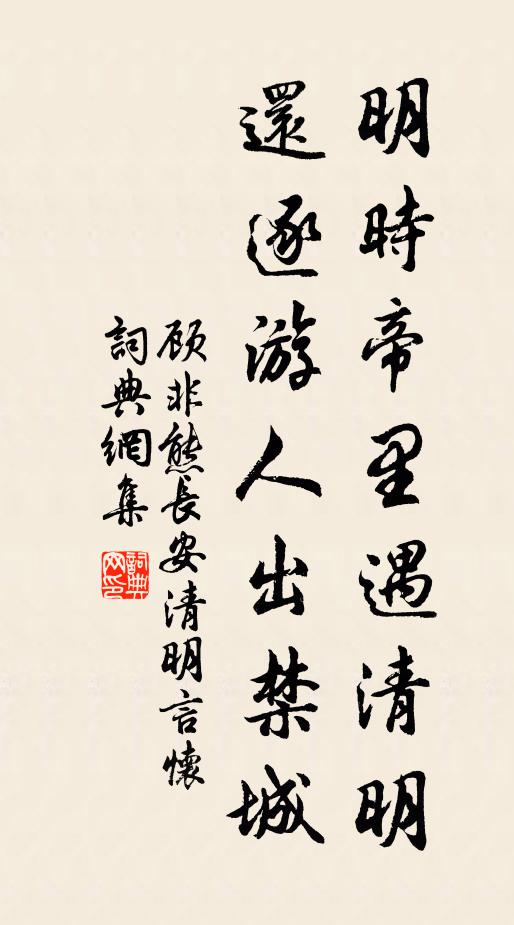 明時帝里遇清明
還逐游人出禁城
顾非熊長安清明言懷
詞典網集
詞典網印